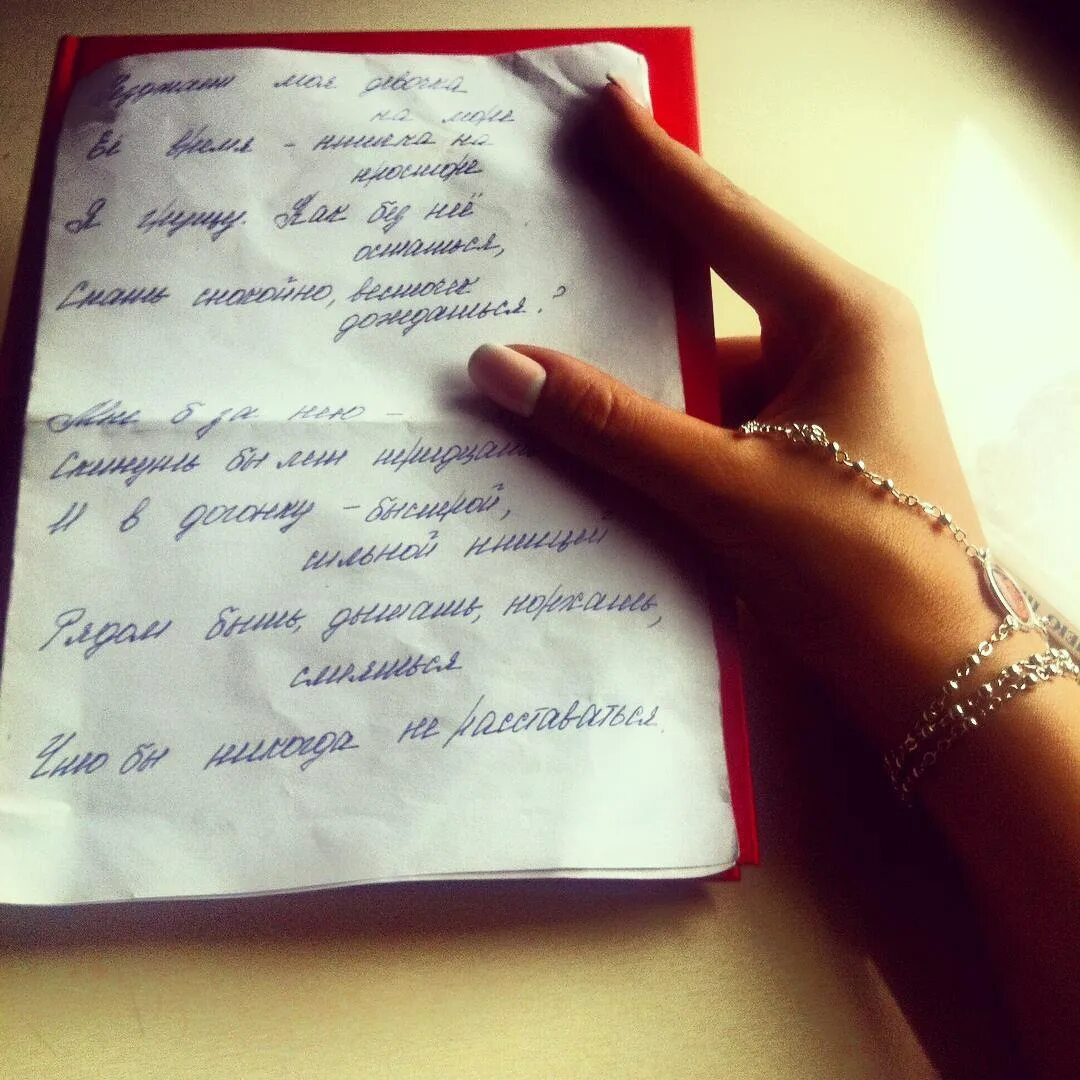 Уезжает моя девочка
на море
Её время - птичка на
просторе
Я грущу. Как без неё
остаться,
Спать спокойно, весточек
дождаться?
Мне б за нею -
Скинуть бы лет тридцать
И в догонку - быстрой,
сильной птицей
Рядом быть, дышать, порхать,
смеяться
Что бы никогда не расставаться.